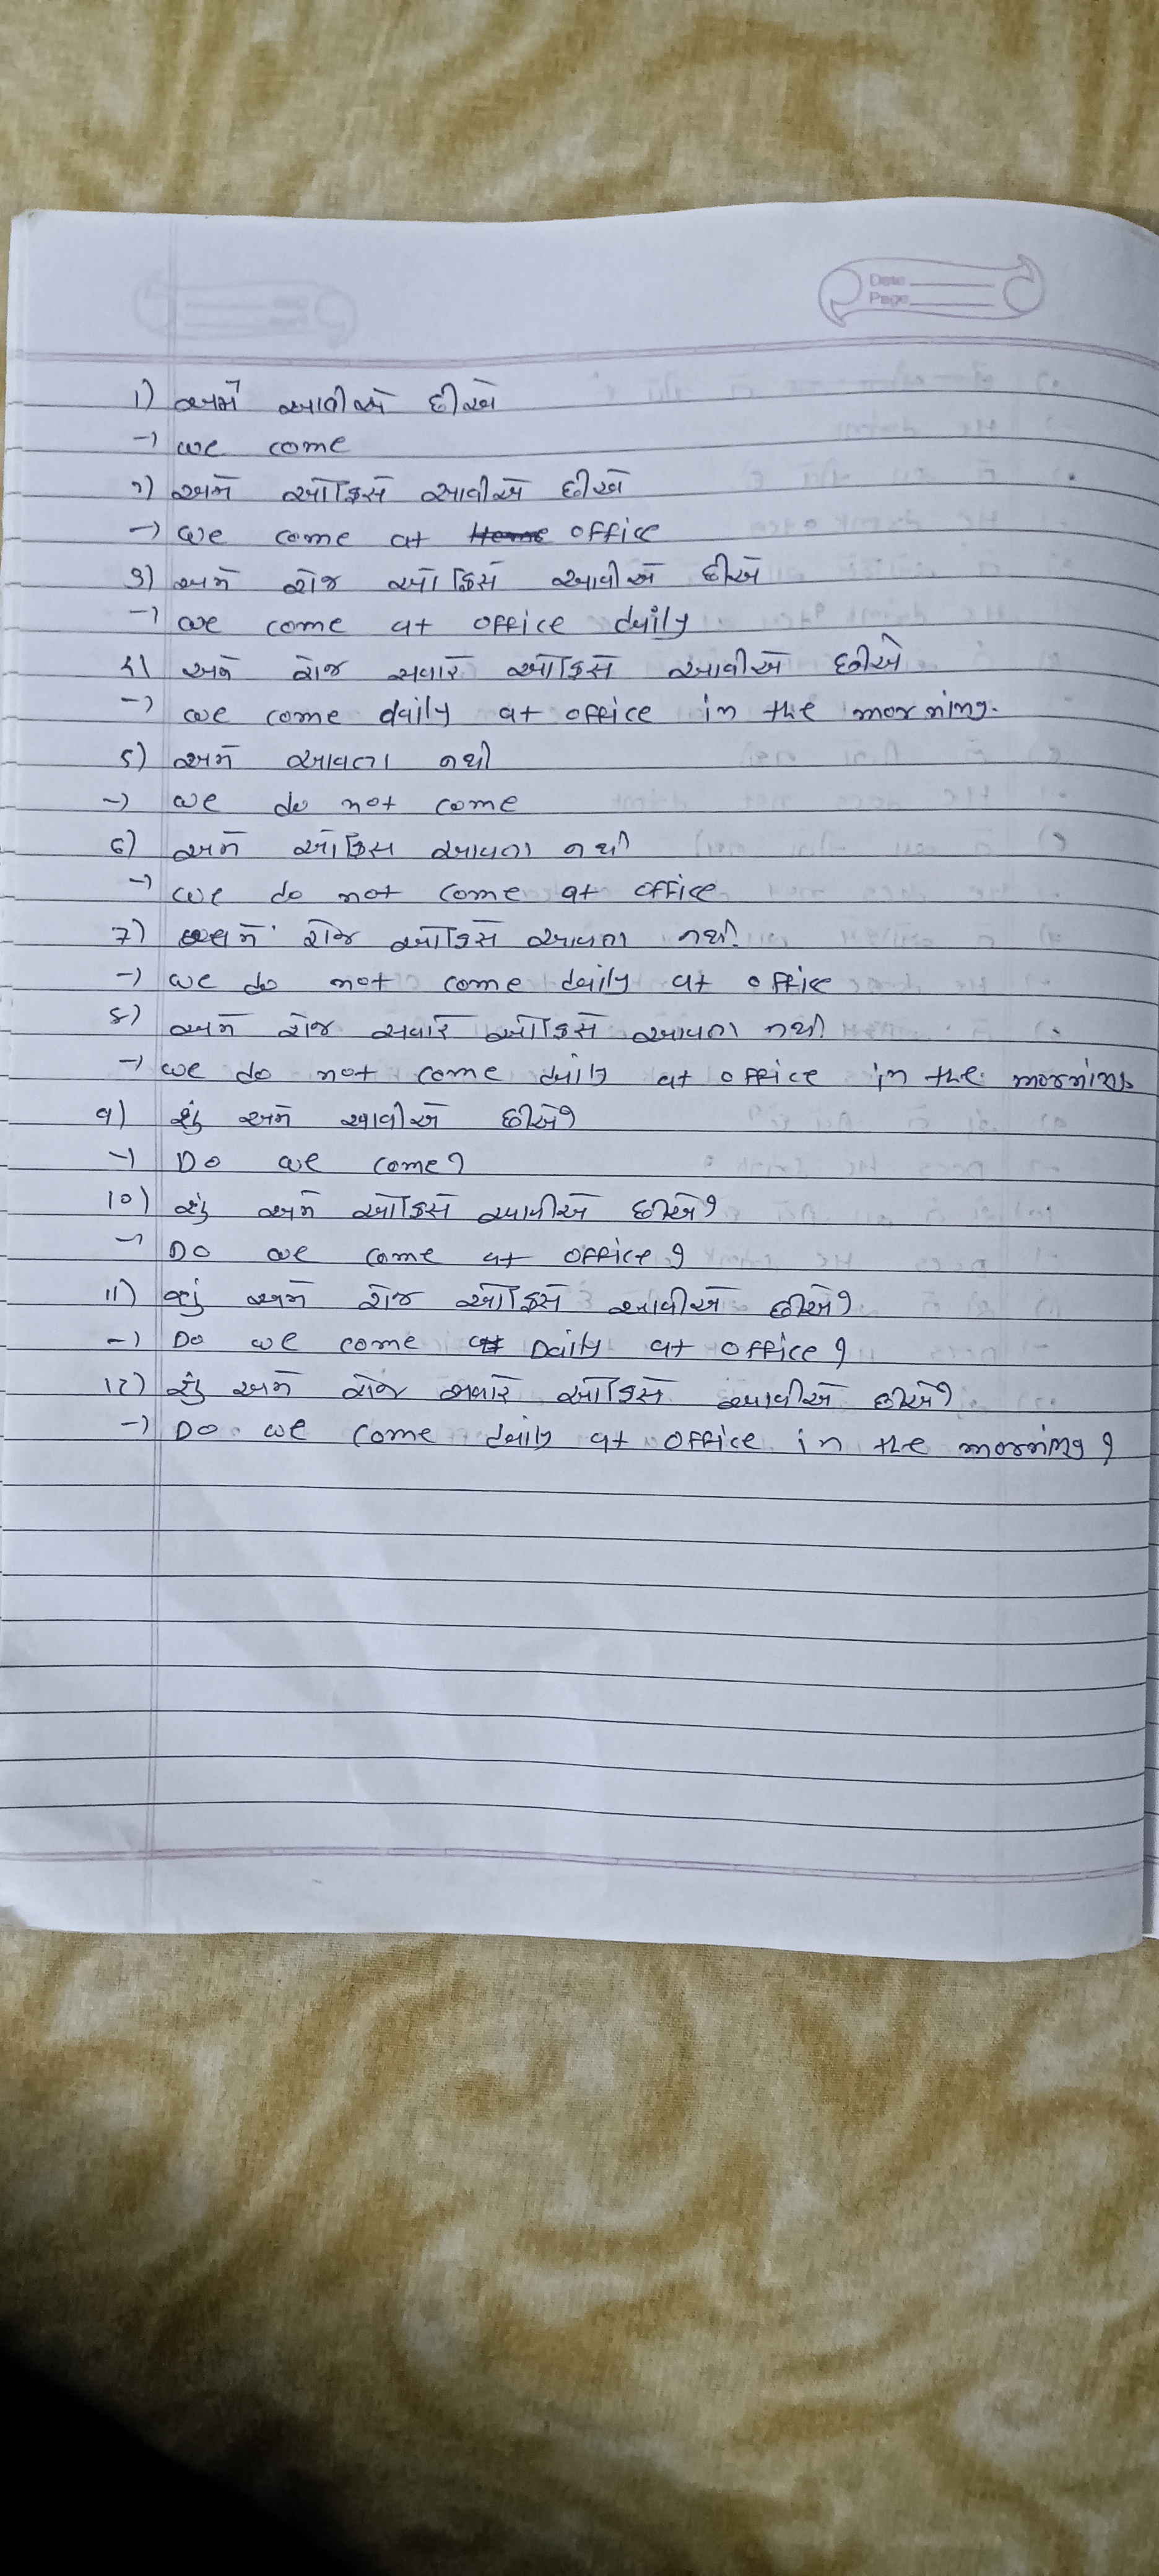 Date
Page
1) અમે આવીએ છીએ
→ we come
૨) અમે ઓફિસે આવીએ છીએ
→ we come at Home office
૩) અમે રોજ ઓફિસે આવીએ છીએ
→ we come at office daily
૪) અમે રોજ સવારે ઓફિસે આવીએ છીએ
→ we come daily at office in the morning.
5) અમે આવતા નથી
→ we do not come
6) અમે ઓફિસ આવતા નથી
→ we do not come at office
7) અમે રોજ ઓફિસે આવતા નથી.
→ we do not come daily at office
8) અમે રોજ સવારે ઓફિસે આવતા નથી.
→ we do not come daily at office in the morning.
9) શું અમે આવીએ છીએ?
→ Do we come?
10) શું અમે ઓફિસે આવીએ છીએ?
→ Do we come at office?
11) શું અમે રોજ ઓફિસે આવીએ છીએ?
→ Do we come Daily at office?
12) શું અમે રોજ સવારે ઓફિસે આવીએ છીએ?
→ Do we come daily at office in the morning?